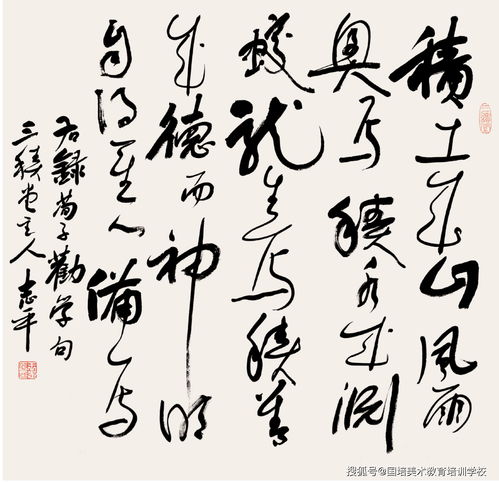 積土成山風雨
興焉積水成淵
蛟龍生焉積善
成德而神明
自得聖心備焉
右錄荀子勸学句
三堂主人志平
搜狐号@国培美术教育培训学校